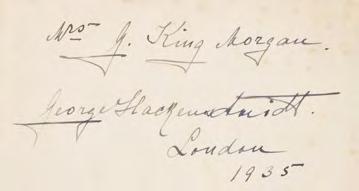 Mrs G. King Morgan.
George Hackenschmidt.
London
1935